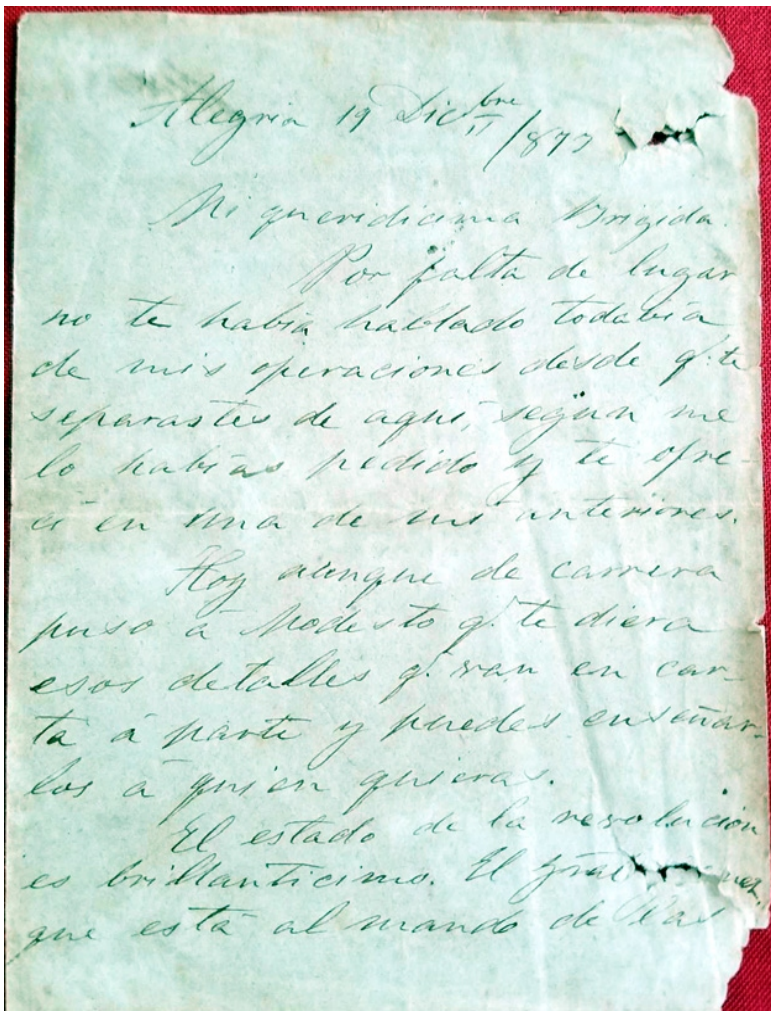 Alegria 19 Dicbre/877
Mi queridicima Brigida.
Por falta de lugar
no te habia hablado todavia
de mis operaciones desde q. te
separastes de aqui, segun me
lo habias pedido y te ofre-
ci en una de mis anteriores.
Hoy aunque de carrera
puso á Modesto q. te diera
esos detalles q. van en car-
ta á parte y puedes enseñar-
los a quien quieras.
El estado de la revolución
es brillanticimo. El Gral
que está al mando de las